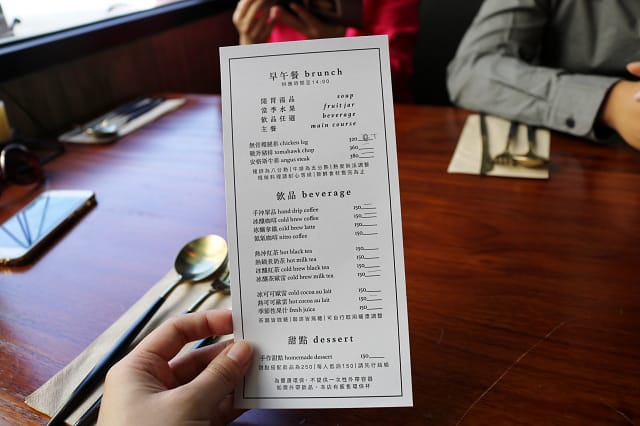 早午餐 brunch
供應時間至14:00
開胃湯品 soup
當季水果 fruit jar
飲品任選 beverage
主餐 main course
無骨雞腿排 chicken leg 320
戰斧豬排 tomahawk chop 360
安格斯牛排 angus steak 380
飲品 beverage
手沖單品 hand drip coffee 150
冰釀咖啡 cold brew coffee 150
冰釀拿鐵 cold brew latte 150
氮氣咖啡 nitro coffee 150
熱沖紅茶 hot black tea 150
熱鍋煮奶茶 hot milk tea 150
冰釀紅茶 cold brew black tea 150
冰釀茶歐蕾 cold brew milk tea 150
冰可可歐蕾 cold cocoa au lait 150
熱可可歐蕾 hot cocoa au lait 150
季節性果汁 fresh juice 150
茶類皆微糖|咖啡皆無糖|可自行取用糖漿調整
甜點 dessert
手作甜點 homemade dessert 150
甜點搭配飲品為250|每人低消150|請先行結帳
為響應環保,不提供一次性外帶容器
如需外帶飲品,本店有販售環保杯